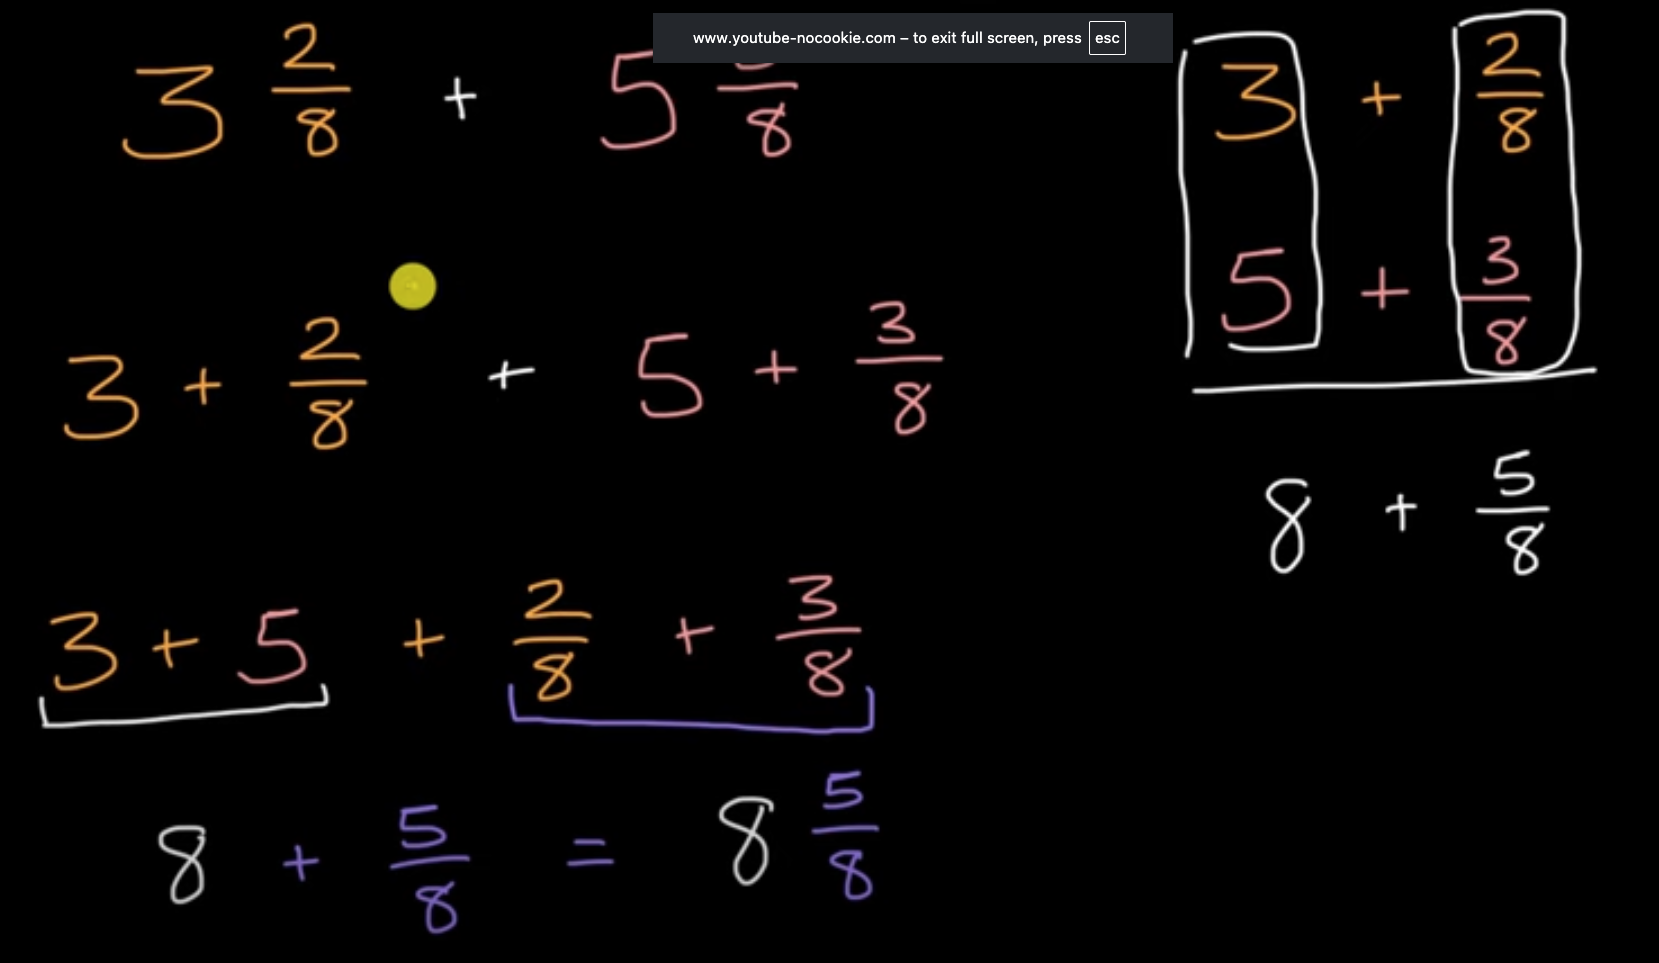 www.youtube-nocookie.com – to exit full screen, press esc
3 2/8 + 5 /8
3 + 2/8 + 5 + 3/8
3 + 5 + 2/8 + 3/8
8 + 5/8 = 8 5/8
3 + 2/8
5 + 3/8
8 + 5/8